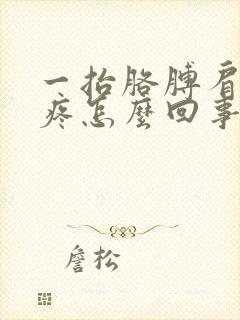 一抬胳膊肩
疼怎麼回事
詹松